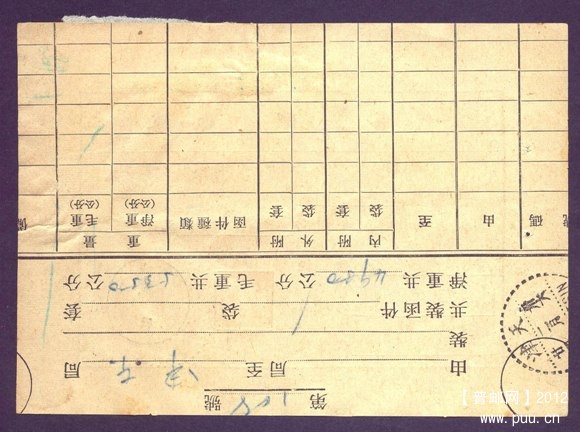 第 108 號
由 局至 局
裝
共裝函件 袋 套
淨重共 4950 公分 毛重共 5350 公分
內附 外附 重量
碼 由 至 袋 套 袋 套 函件種類 淨重 (公分) 毛重 (公分) 備
2012
www.puu.cn